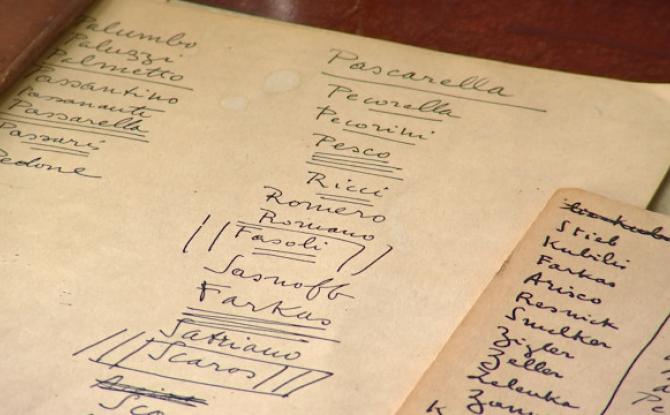 Palumbo
Paluzzi
Palmetto
Passantino
Passanante
Passarella
Passaris
Pedone
Pascarella
Pecorella
Pecorini
Pesco
Ricci
Romero
Romano
Fasoli
Sasnoff
Farkus
Satriano
Scaros
Sco
Stieb
Kubilis
Farkas
Arisco
Resnick
Smelker
Zigler
Zeller
Zelenka
Zam
K